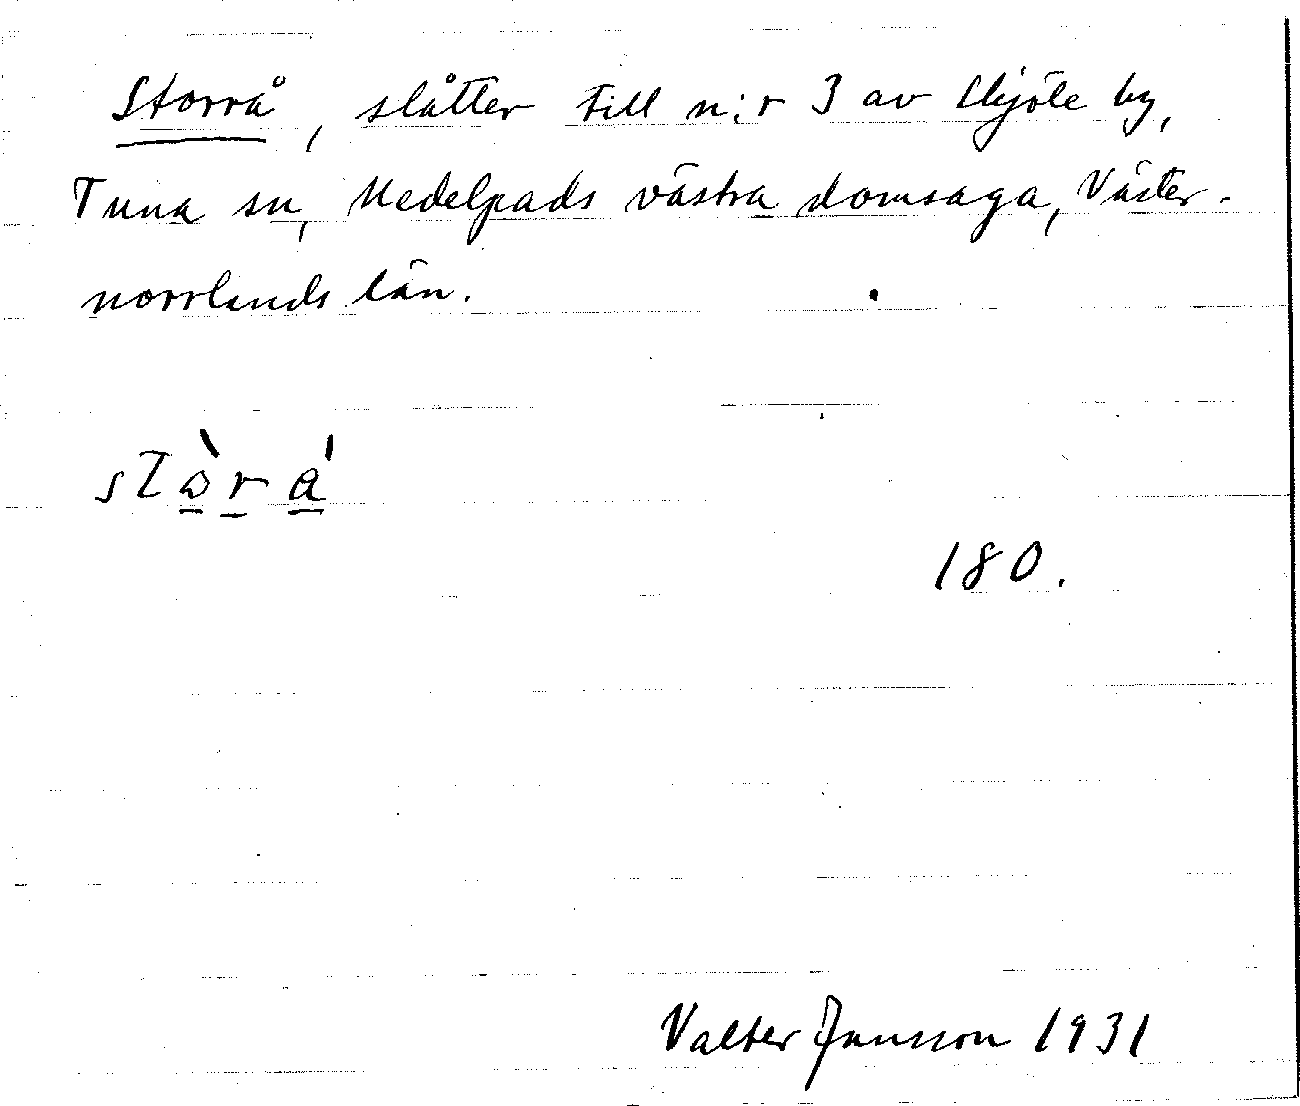 Storrå, slåtter till n:r 3 av Skjöle by,
Tuna sn, Medelpads västra domsaga, Väster-
norrlands län.
180.
Valter Jansson 1931